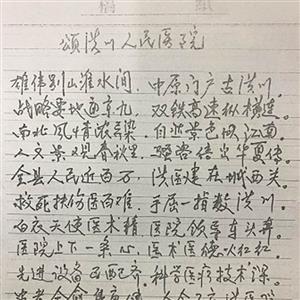 颂潢川人民医院
雄伟别山淮水间，中原门户古潢川。
战略要地通京九，双铁高速纵横连。
南北风情浓 自然景色似江南。
人文景观春秋 华夏传。
全县人民近百万，潢医建在城西关。
救死扶伤医百难，手屈一指数潢川。
白衣天使医术精 医院领导车头奔。
医院上下一条心，医术医德火红红。
先进设备已配齐，科学医疗技术深。